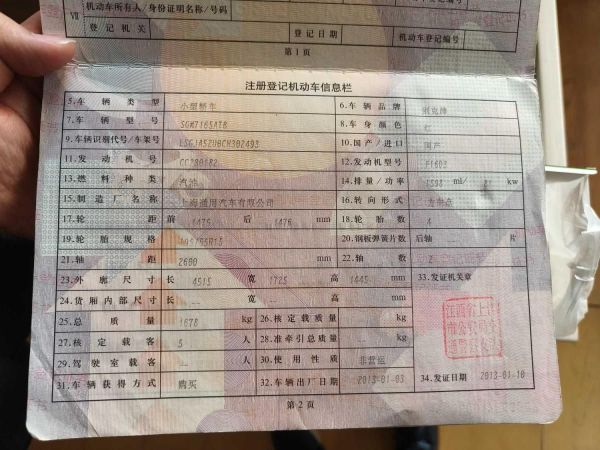 Ⅶ 机动车所有人/身份证明名称/号码
登记机关 登记日期 机动车登记编号
第1页
注册登记机动车信息栏
5.车辆类型 小型轿车 6.车辆品牌 别克牌
7.车辆型号 SGM7165ATB 8.车身颜色 红
9.车辆识别代号/车架号 10.国产/进口 国产
11.发动机号 12.发动机型号
13.燃料种类 汽油 14.排量/功率 1598 ml/ kw
15.制造厂名称 上海通用汽车有限公司 16.转向形式
17.轮距 前 1475 后 1476 mm 18.轮胎数 4
19.轮胎规格 20.钢板弹簧片数 后轴 片
21.轴距 2600 mm 22.轴数 2
23.外廓尺寸 长 4515 宽 1725 高 1445 mm 33.发证机关章
24.货厢内部尺寸 长 -- 宽 -- 高 -- mm
25.总质量 1678 kg 26.核定载质量 -- kg
27.核定载客 5 人 28.准牵引总质量 -- kg
29.驾驶室载客 -- 人 30.使用性质 非营运
31.车辆获得方式 购买 32.车辆出厂日期 2013-01-03 34.发证日期 2013-01-10
第2页